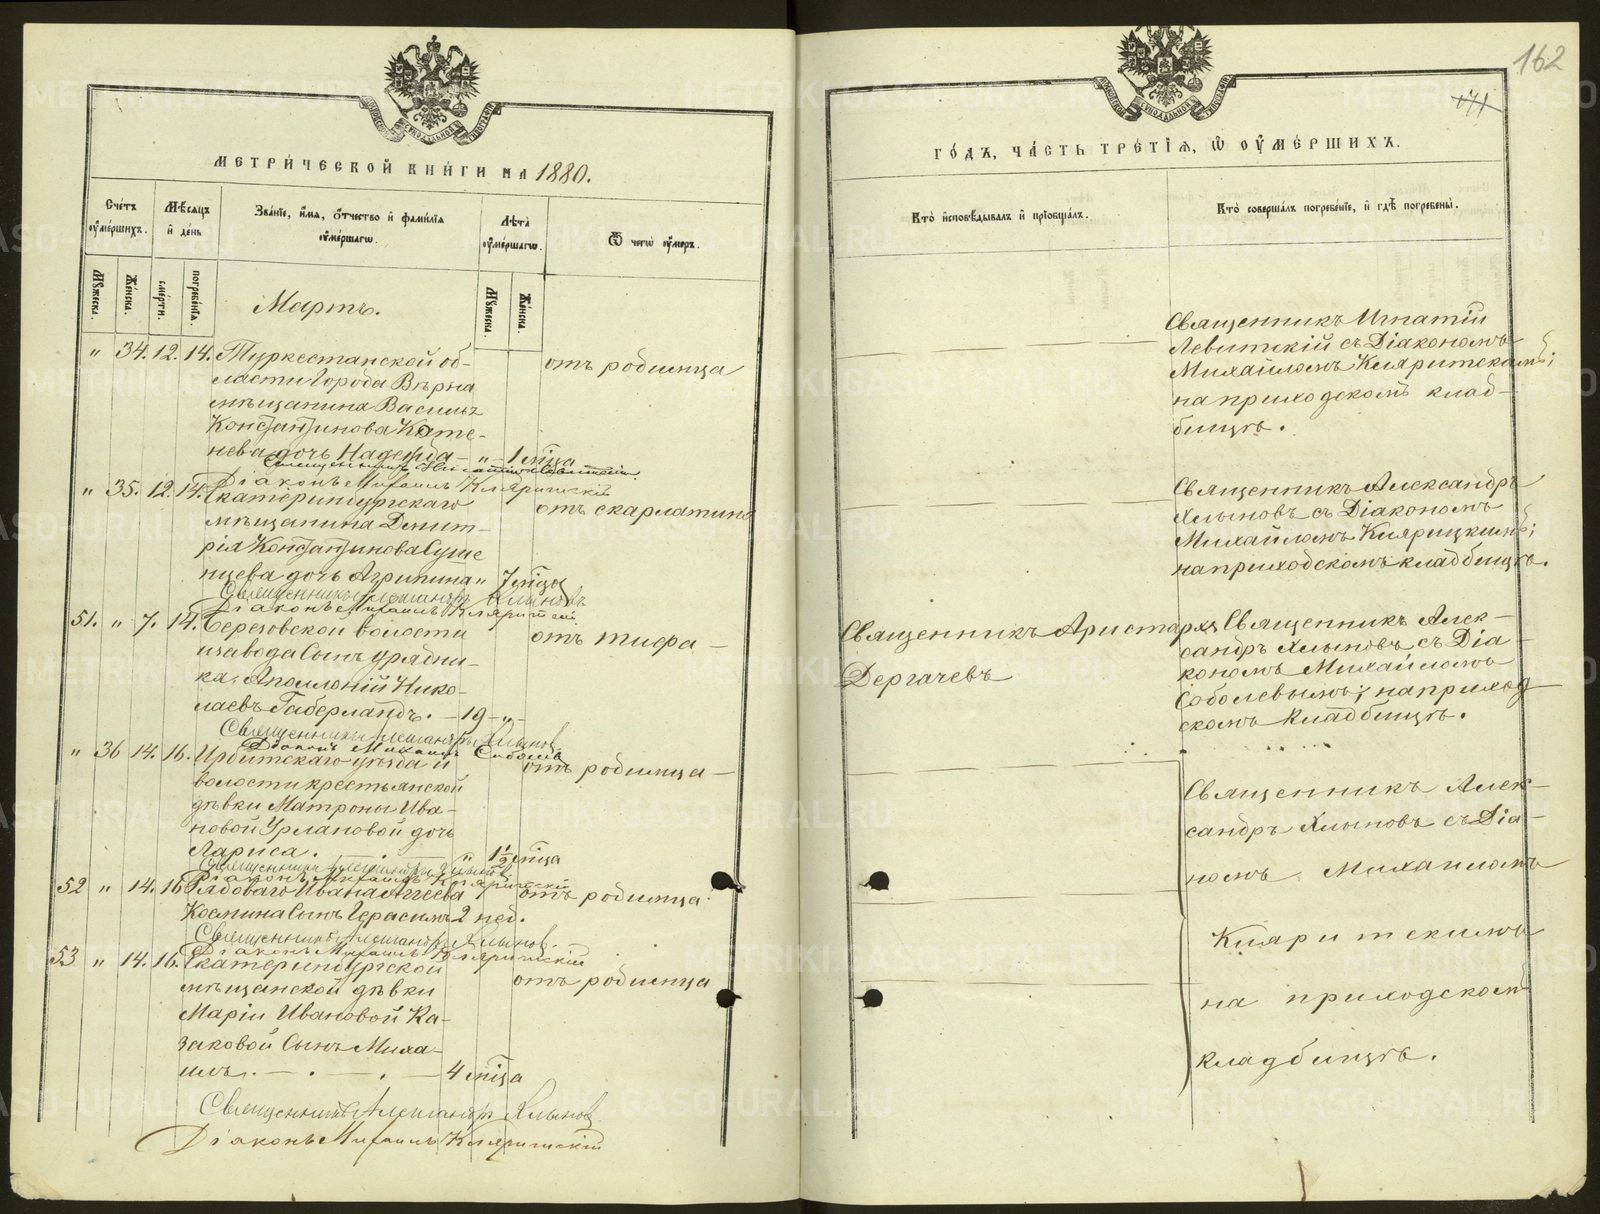 МЕТРИ́ЧЕСКОЙ КНИ́ГИ НА 1880.
Сче́тъ оу҆ме́ршихъ.
Мѣ́сяцъ и҆ де́нь
Зва́нїе, и҆́мя, ѻ҆́тчество и҆ фами́лїя оу҆ме́ршагѡ.
Лѣ́та оу҆ме́ршагѡ.
Ѿ чегѡ̀ оу҆́меръ.
Мꙋ́жеска.
Же́нска.
сме́рти.
погребе́нїя.
Мꙋ́жеска.
Же́нска.
Мартъ.
" 34. 12. 14. Туркестанской об-
ласти города Вѣрна
мѣщанина Василья
Константинова Кате-
нева дочь Надежда — " — 1 мѣсяца
отъ родимца
Священникъ Игнатій Левитскій
Діаконъ Михаилъ Кляритскій
" 35. 12. 14. Екатеринбургскаго
мѣщанина Димит-
рія Константинова Суше
нцева дочь Агрипина " 7 мѣсяц
отъ скарлатины
Священникъ Александръ Хлыновъ
Діаконъ Михаилъ Кляритскій
51. " 7. 14. Березовской волости
и завода Сынъ урядни-
ка, Аполлоній Нико-
лаевъ Габерландъ. — 19 — " —
отъ тифа —
Священникъ Александръ Хлынов.
Діаконъ Михаилъ Соболев
" 36 14. 16. Ирбитскаго уѣзда и
волости крестьянской
дѣвки Матроны Ива-
новой Урлановой дочь
Лариса. — . — " 1½ мѣсяца
отъ родимца —
Священникъ Александръ Хлынов
Діаконъ Михаилъ Кляритскій
52 " 14. 16 Рядоваго Ивана Агѣева
Космина Сынъ Герасимъ 2 нед.
отъ родимца.
Священникъ Александръ Хлынов.
Діаконъ Михаилъ Кляритскій
53 " 14. 16. Екатеринбургской
мѣщанской дѣвки
Маріи Ивановой Ка-
заковой Сынъ Миха-
илъ. — . — . — 4 мѣсяца
отъ родимца
Священникъ Александръ Хлынов
Діаконъ Михаилъ Кляритскій
162
171
ГО́ДЪ, ЧА́СТЬ ТРЕ́ТІѦ, Ѡ҆ ОУ҆МЕ́РШИХЪ.
Кто̀ и҆сповѣ́дывалъ и҆ прїѡбща́лъ.
Кто̀ соверша́лъ погребе́нїе, и҆ гдѣ̀ погребены̀.
Священникъ Игнатій
Левитскій съ Діакономъ
Михайломъ Кляритскимъ;
на приходскомъ клад-
бищѣ.
Священникъ Александръ
Хлыновъ съ Діакономъ
Михайломъ Клярицкимъ;
на приходскомъ кладбищѣ.
Священникъ Аристархъ
Дергачевъ
Священникъ Алек-
сандръ Хлыновъ съ Діа-
кономъ Михайломъ
Соболевымъ; на приход
скомъ кладбищѣ.
Священникъ Алек-
сандръ Хлыновъ съ Діа-
номъ Михайломъ
Кляритскимъ
на приходском
кладбищѣ.